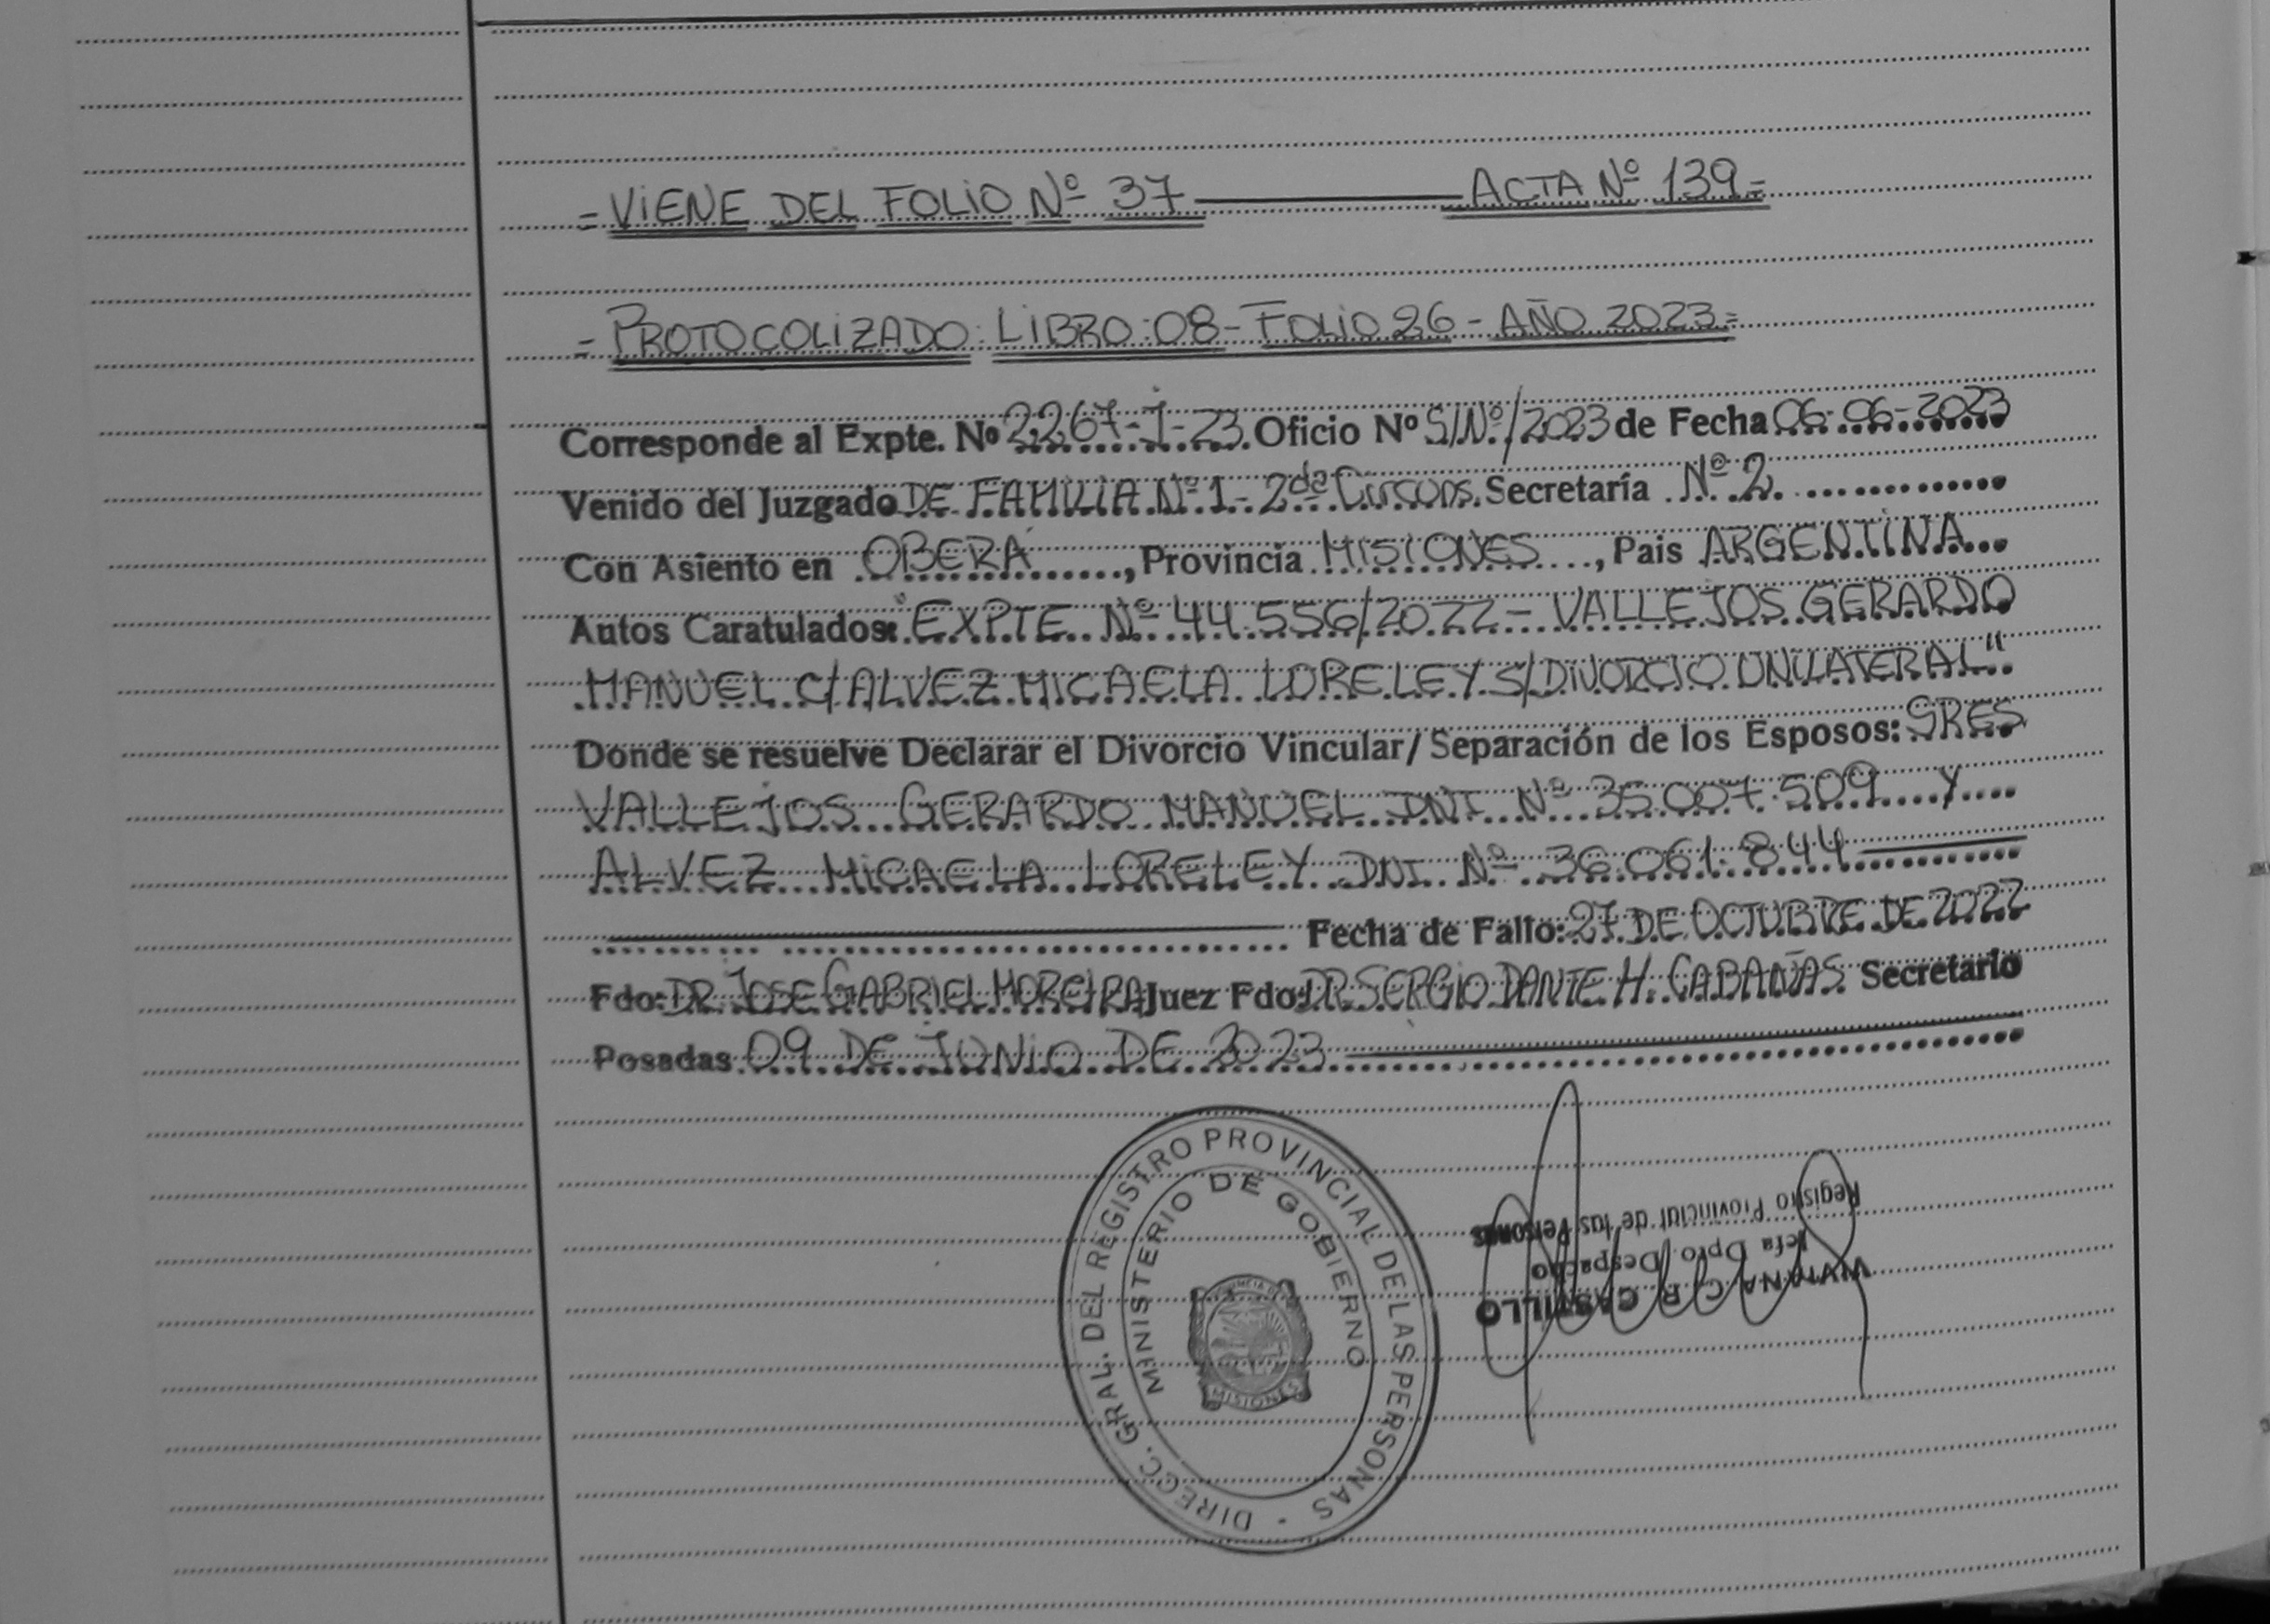 = VIENE DEL FOLIO Nº 37 ——— ACTA Nº 139=
= PROTOCOLIZADO: LIBRO: 08 - FOLIO 26 - AÑO 2023=
Corresponde al Expte. Nº 2267-J-23. Oficio Nº S/Nº/2023 de Fecha 06-06-2023
Venido del Juzgado DE FAMILIA Nº 1 - 2da Circuns. Secretaría Nº 2
Con Asiento en OBERA, Provincia MISIONES, Pais ARGENTINA
Autos Caratulados: "EXPTE Nº 44.556/2022 - VALLEJOS GERARDO
MANUEL C/ ALVEZ MICAELA LORELEY S/ DIVORCIO UNILATERAL"
Donde se resuelve Declarar el Divorcio Vincular/ Separación de los Esposos: SRES
VALLEJOS GERARDO MANUEL DNI Nº 35.007.509 Y
ALVEZ MICAELA LORELEY DNI Nº 36.061.844
Fecha de Fallo: 27 DE OCTUBRE DE 2022
Fdo: DR. JOSE GABRIEL MOREIRA Juez Fdo: DR SERGIO DANTE H. CABAÑAS Secretario
Posadas 09 DE JUNIO DE 2023
DIRECC. GRAL. DEL REGISTRO PROVINCIAL DE LAS PERSONAS
MINISTERIO DE GOBIERNO
PROVINCIA DE
MISIONES
VIVIANA G. R. CASTILLO
Jefa Dpto. Despacho
Registro Provincial de las Personas